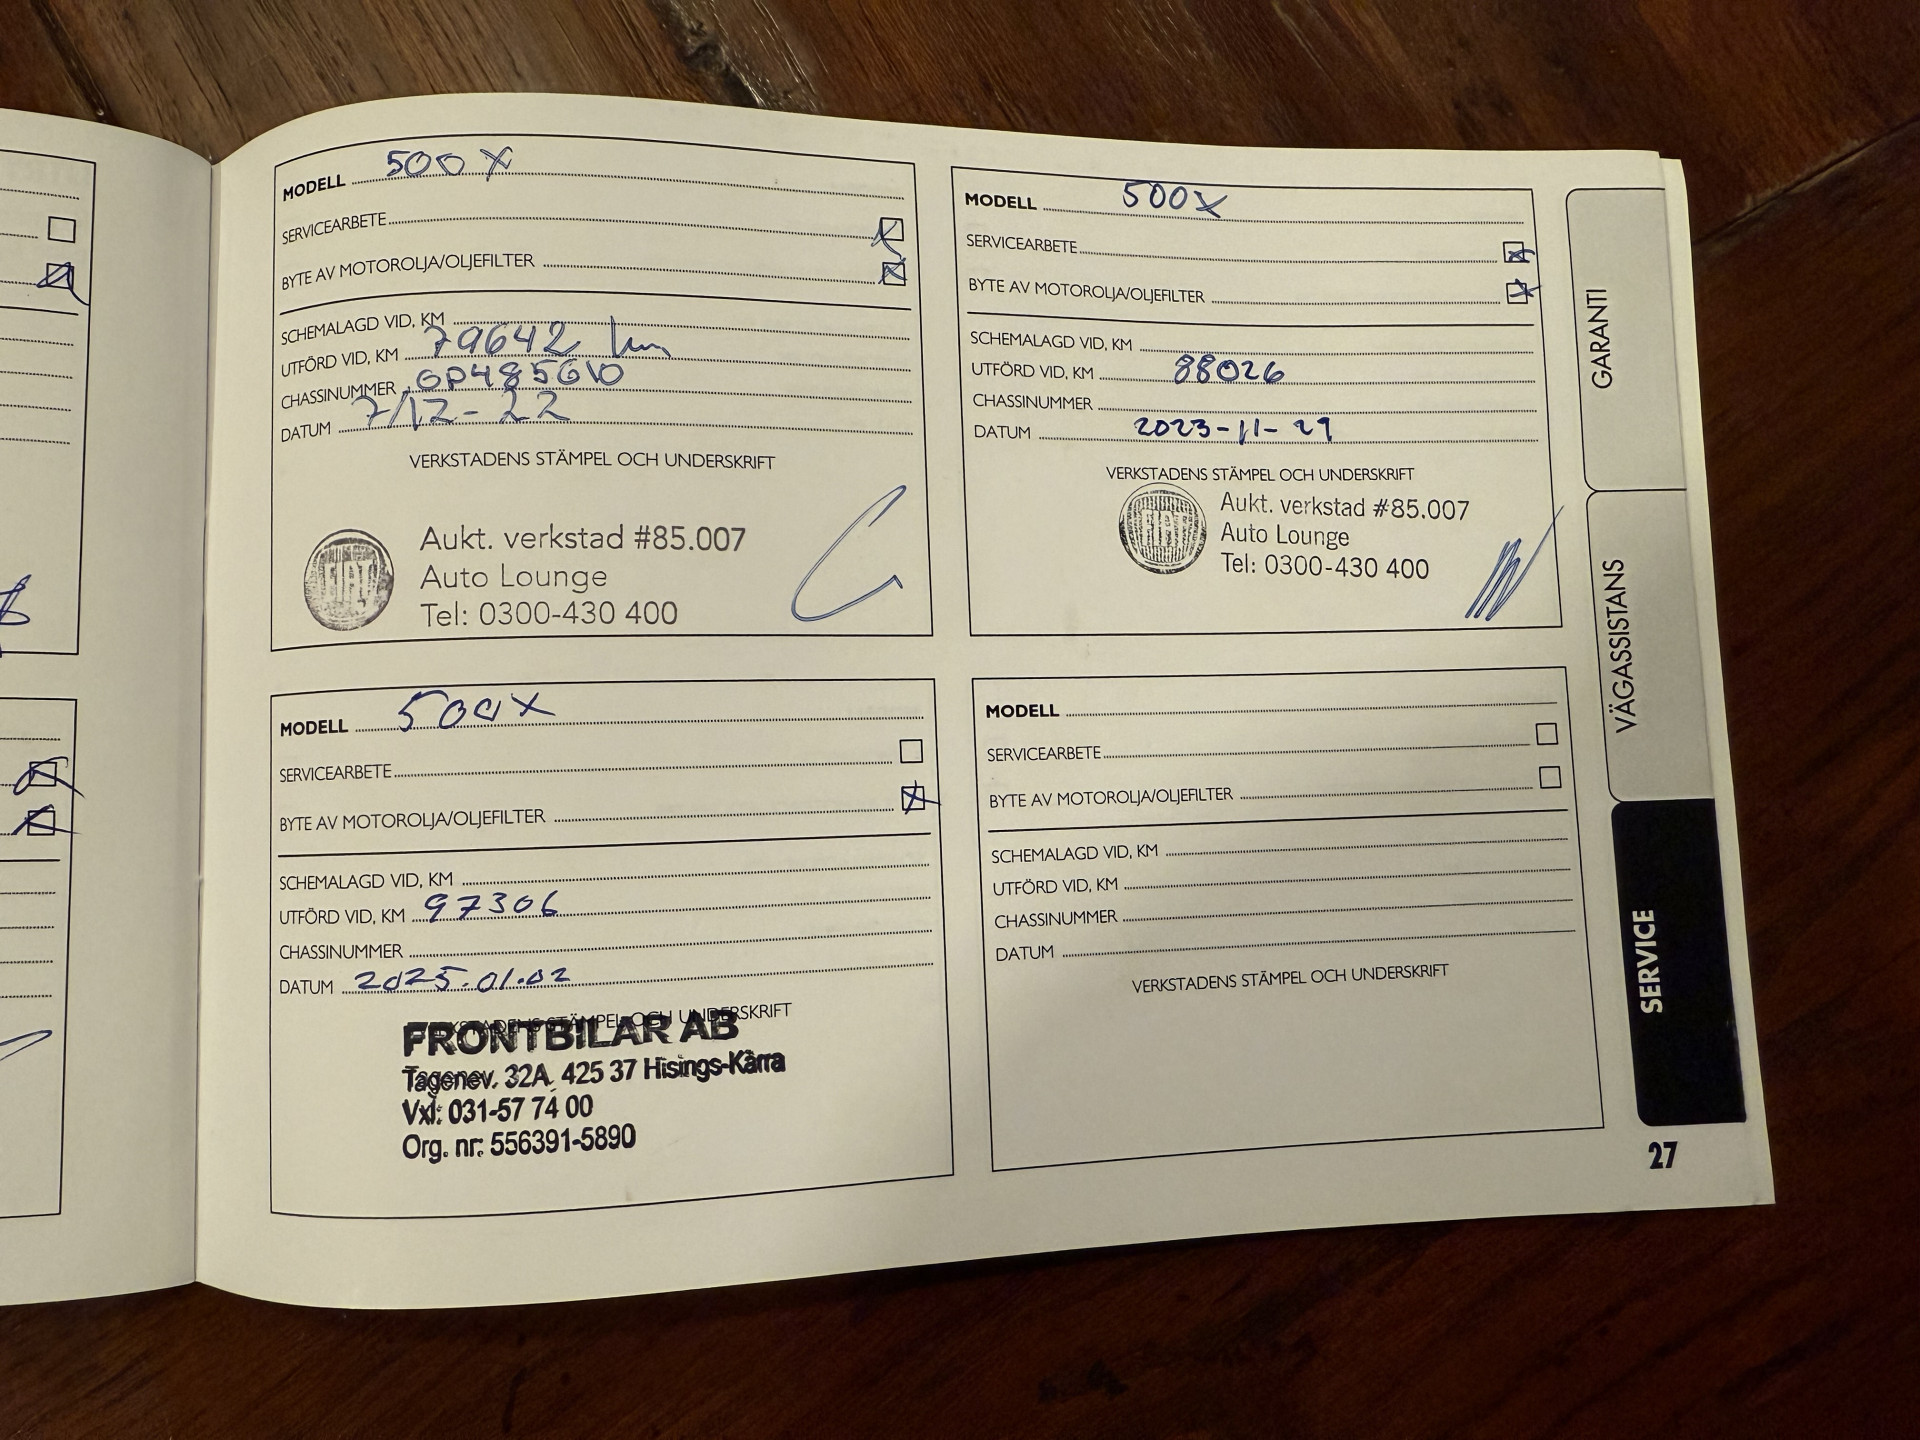 MODELL 500X
SERVICEARBETE
BYTE AV MOTOROLJA/OLJEFILTER
SCHEMALAGD VID, KM
UTFÖRD VID, KM 79642 km
CHASSINUMMER
DATUM 7/12-22
VERKSTADENS STÄMPEL OCH UNDERSKRIFT
FIAT
Aukt. verkstad #85.007
Auto Lounge
Tel: 0300-430 400
MODELL 500X
SERVICEARBETE
BYTE AV MOTOROLJA/OLJEFILTER
SCHEMALAGD VID, KM
UTFÖRD VID, KM 88026
CHASSINUMMER
DATUM
VERKSTADENS STÄMPEL OCH UNDERSKRIFT
FIAT
Aukt. verkstad #85.007
Auto Lounge
Tel: 0300-430 400
MODELL 500X
SERVICEARBETE
BYTE AV MOTOROLJA/OLJEFILTER
SCHEMALAGD VID, KM
UTFÖRD VID, KM 97306
CHASSINUMMER
DATUM 2025.01.02
VERKSTADENS STÄMPEL OCH UNDERSKRIFT
FRONTBILAR AB
Tagenev. 32A, 425 37 Hisings-Kärra
Vxl: 031-57 74 00
Org. nr: 556391-5890
MODELL
SERVICEARBETE
BYTE AV MOTOROLJA/OLJEFILTER
SCHEMALAGD VID, KM
UTFÖRD VID, KM
CHASSINUMMER
DATUM
VERKSTADENS STÄMPEL OCH UNDERSKRIFT
GARANTI
VÄGASSISTANS
SERVICE
27